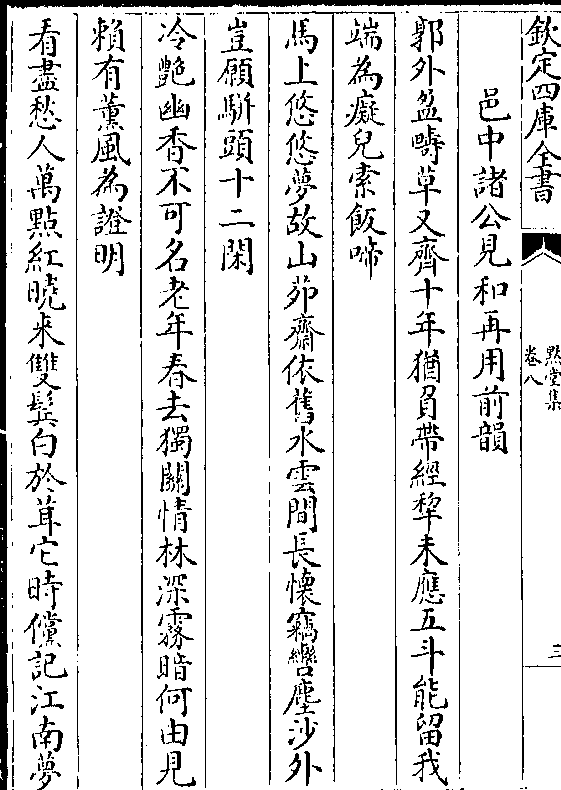 欽定四庫全書
默堂集
卷八
三
邑中諸公見和再用前韻
郭外盆疇草又齊十年猶負帶經犂未應五斗能留我
端為癡兒索飯啼
馬上悠悠夢故山茆齋依舊水雲間長懷竊轡塵沙外
豈願駢頭十二閑
冷艷幽香不可名老年春去獨關情林深霧暗何由見
賴有薰風為證明
看盡愁人萬點紅曉來雙鬂白於茸它時儻記江南夢